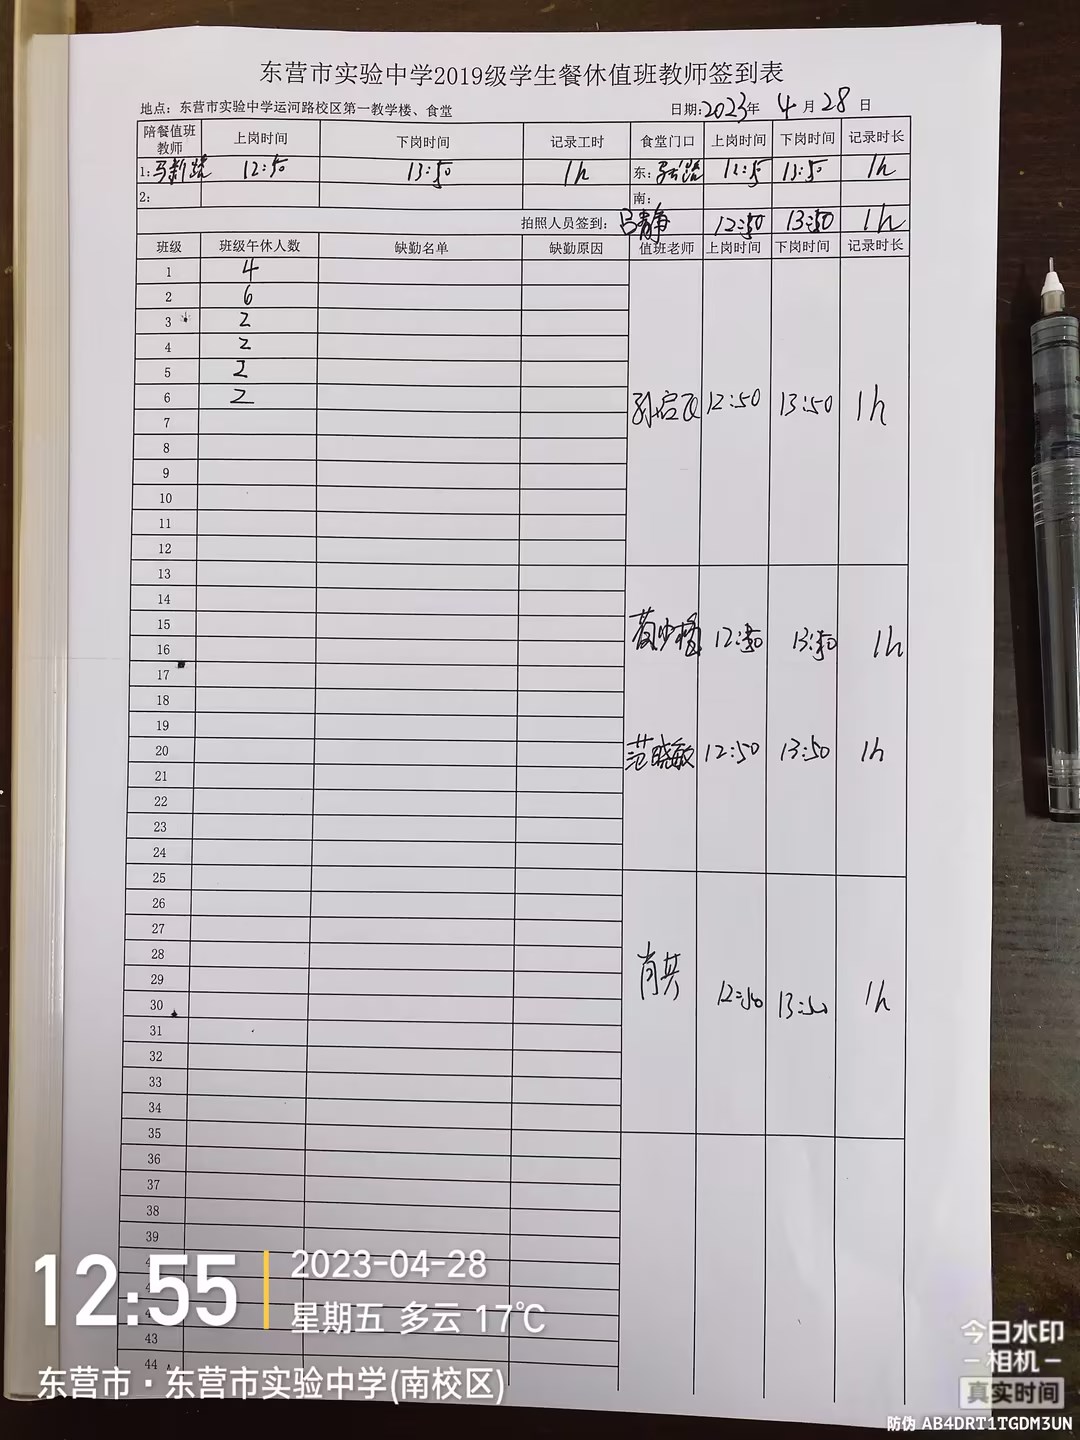 东营市实验中学2019级学生餐休值班教师签到表
地点：东营市实验中学运河路校区第一教学楼、食堂 日期:2023年 4 月 28 日
陪餐值班教师 上岗时间 下岗时间 记录工时 食堂门口 上岗时间 下岗时间 记录时长
1: 12:50 13:50 1h 东: 13:50 1h
2: 南:
拍照人员签到: 吕静 12:50 13:50 1h
班级 班级午休人数 缺勤名单 缺勤原因 值班老师 上岗时间 下岗时间 记录时长
1 4
2 6
3 2
4 2
5 2
6 2 12:50 13:50 1h
7
8
9
10
11
12
13
14
15
16 12:50 13:50 1h
17
18
19
20 范晓敏 12:50 13:50 1h
21
22
23
24
25
26
27
28
29
30 12:50 13:50 1h
31
32
33
34
35
36
37
38
39
43
44
12:55
2023-04-28
星期五 多云 17℃
东营市·东营市实验中学(南校区)
今日水印
相机
真实时间
防伪 AB4DRT1TGDM3UN